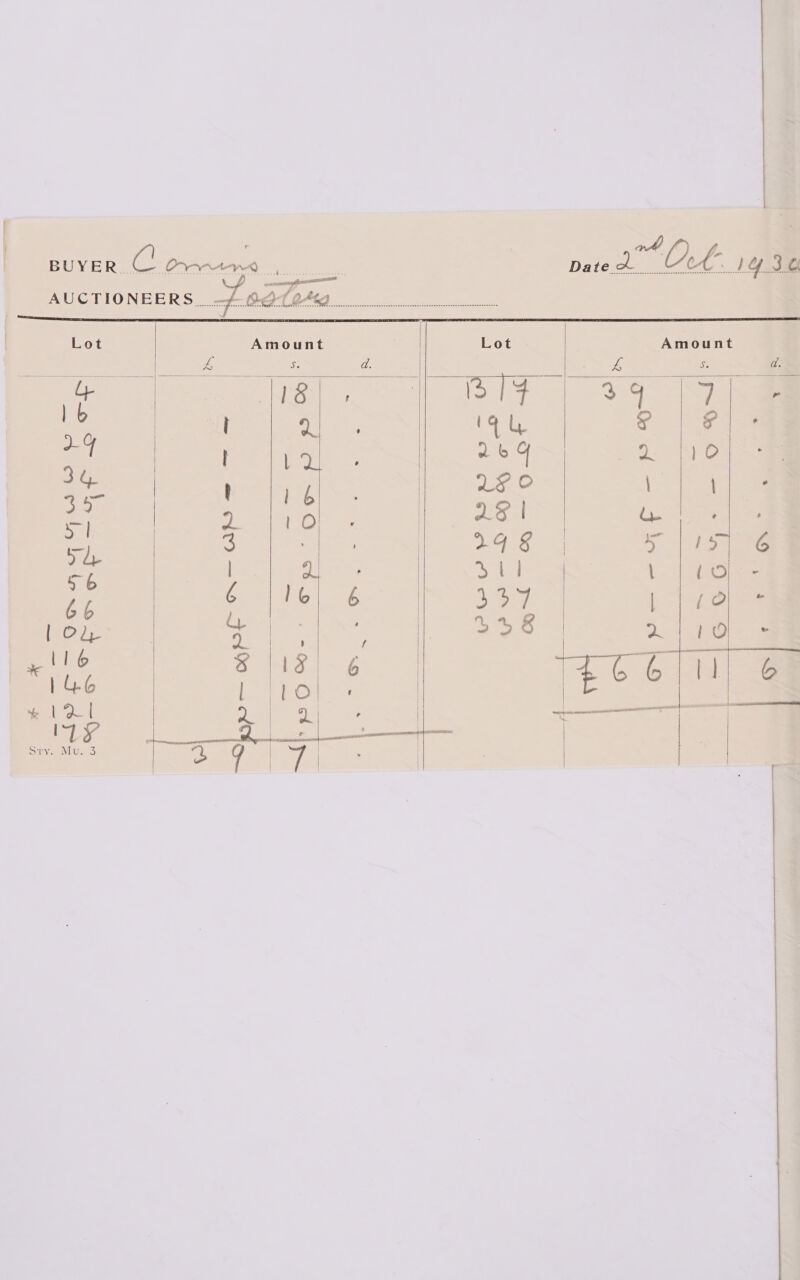 BUYER Date 2nd Oct.
AUCTIONEERS
Lot Amount Lot Amount
£ s. d. £ s. d.
4 18 - B/F 39 7 -
16 1 2 - 194 8 8 -
29 1 12 - 269 2 10 -
34 1 16 - 280 1 1 -
35 2 10 - 281 4 - -
51 3 - - 298 5 15 6
54 1 2 - 311 1 10 -
56 6 16 6 337 1 10 -
66 4 - - 338 2 10 -
104 2 - -
* 116 8 18 6 £66 11 6
146 1 10 -
* 121 2 2 -
178 2 - -
Sty. Mu. 3 39 7 -